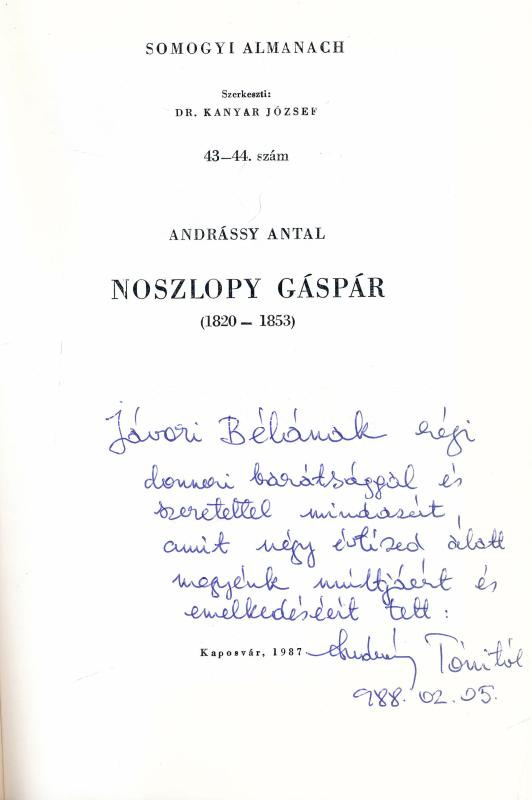 SOMOGYI ALMANACH
Szerkeszti:
DR. KANYAR JÓZSEF
43—44. szám
ANDRÁSSY ANTAL
NOSZLOPY GÁSPÁR
(1820 — 1853)
Jávori Bélának régi
donneri barátsággal és
szeretettel mindazért,
amit négy évtized alatt
megyénk múltjáért és
emelkedéséért tett:
Kaposvár, 1987
Andrássy Tónitól
988. 02. 05.